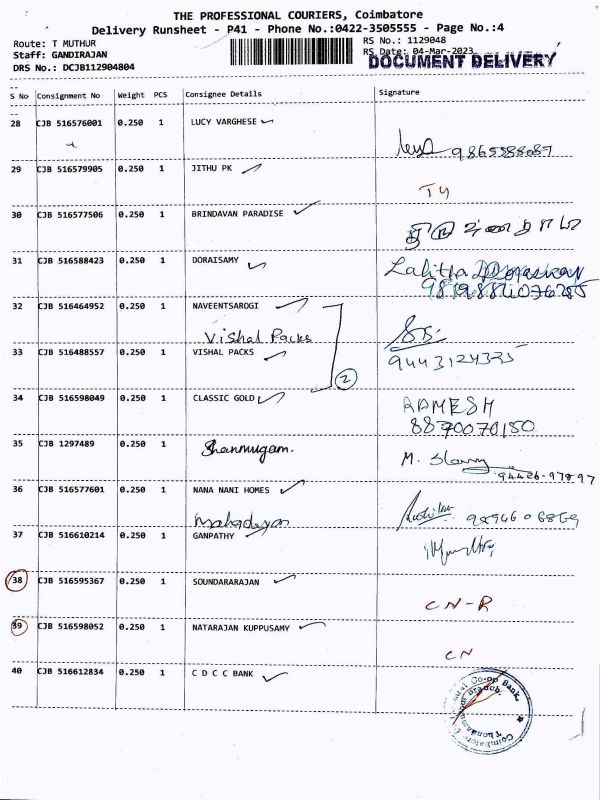 THE PROFESSIONAL COURIERS, Coimbatore
Delivery Runsheet - P41 - Phone No.:0422-3505555 - Page No.:4
Route: T MUTHUR
RS No.: 1129048
Staff: GANDIRAJAN
RS Date: 04-Mar-2023
DRS No.: DCJB112904804
DOCUMENT DELIVERY
S No Consignment No Weight PCS Consignee Details Signature
28 CJB 516576001 0.250 1 LUCY VARGHESE
9865588089
29 CJB 516579905 0.250 1 JITHU PK
TY
30 CJB 516577506 0.250 1 BRINDAVAN PARADISE
31 CJB 516588423 0.250 1 DORAISAMY
Lalitha
32 CJB 516464952 0.250 1 NAVEENTSAROGI
Vishal Packs
33 CJB 516488557 0.250 1 VISHAL PACKS
9443124335
2
34 CJB 516598049 0.250 1 CLASSIC GOLD
RAMESH
8870070150
35 CJB 1297489 0.250 1 Shanmugam.
94426-97897
36 CJB 516577601 0.250 1 NANA NANI HOMES
Mahadevan
37 CJB 516610214 0.250 1 GANPATHY
38 CJB 516595367 0.250 1 SOUNDARARAJAN
CN-R
39 CJB 516598052 0.250 1 NATARAJAN KUPPUSAMY
CN
40 CJB 516612834 0.250 1 C D C C BANK